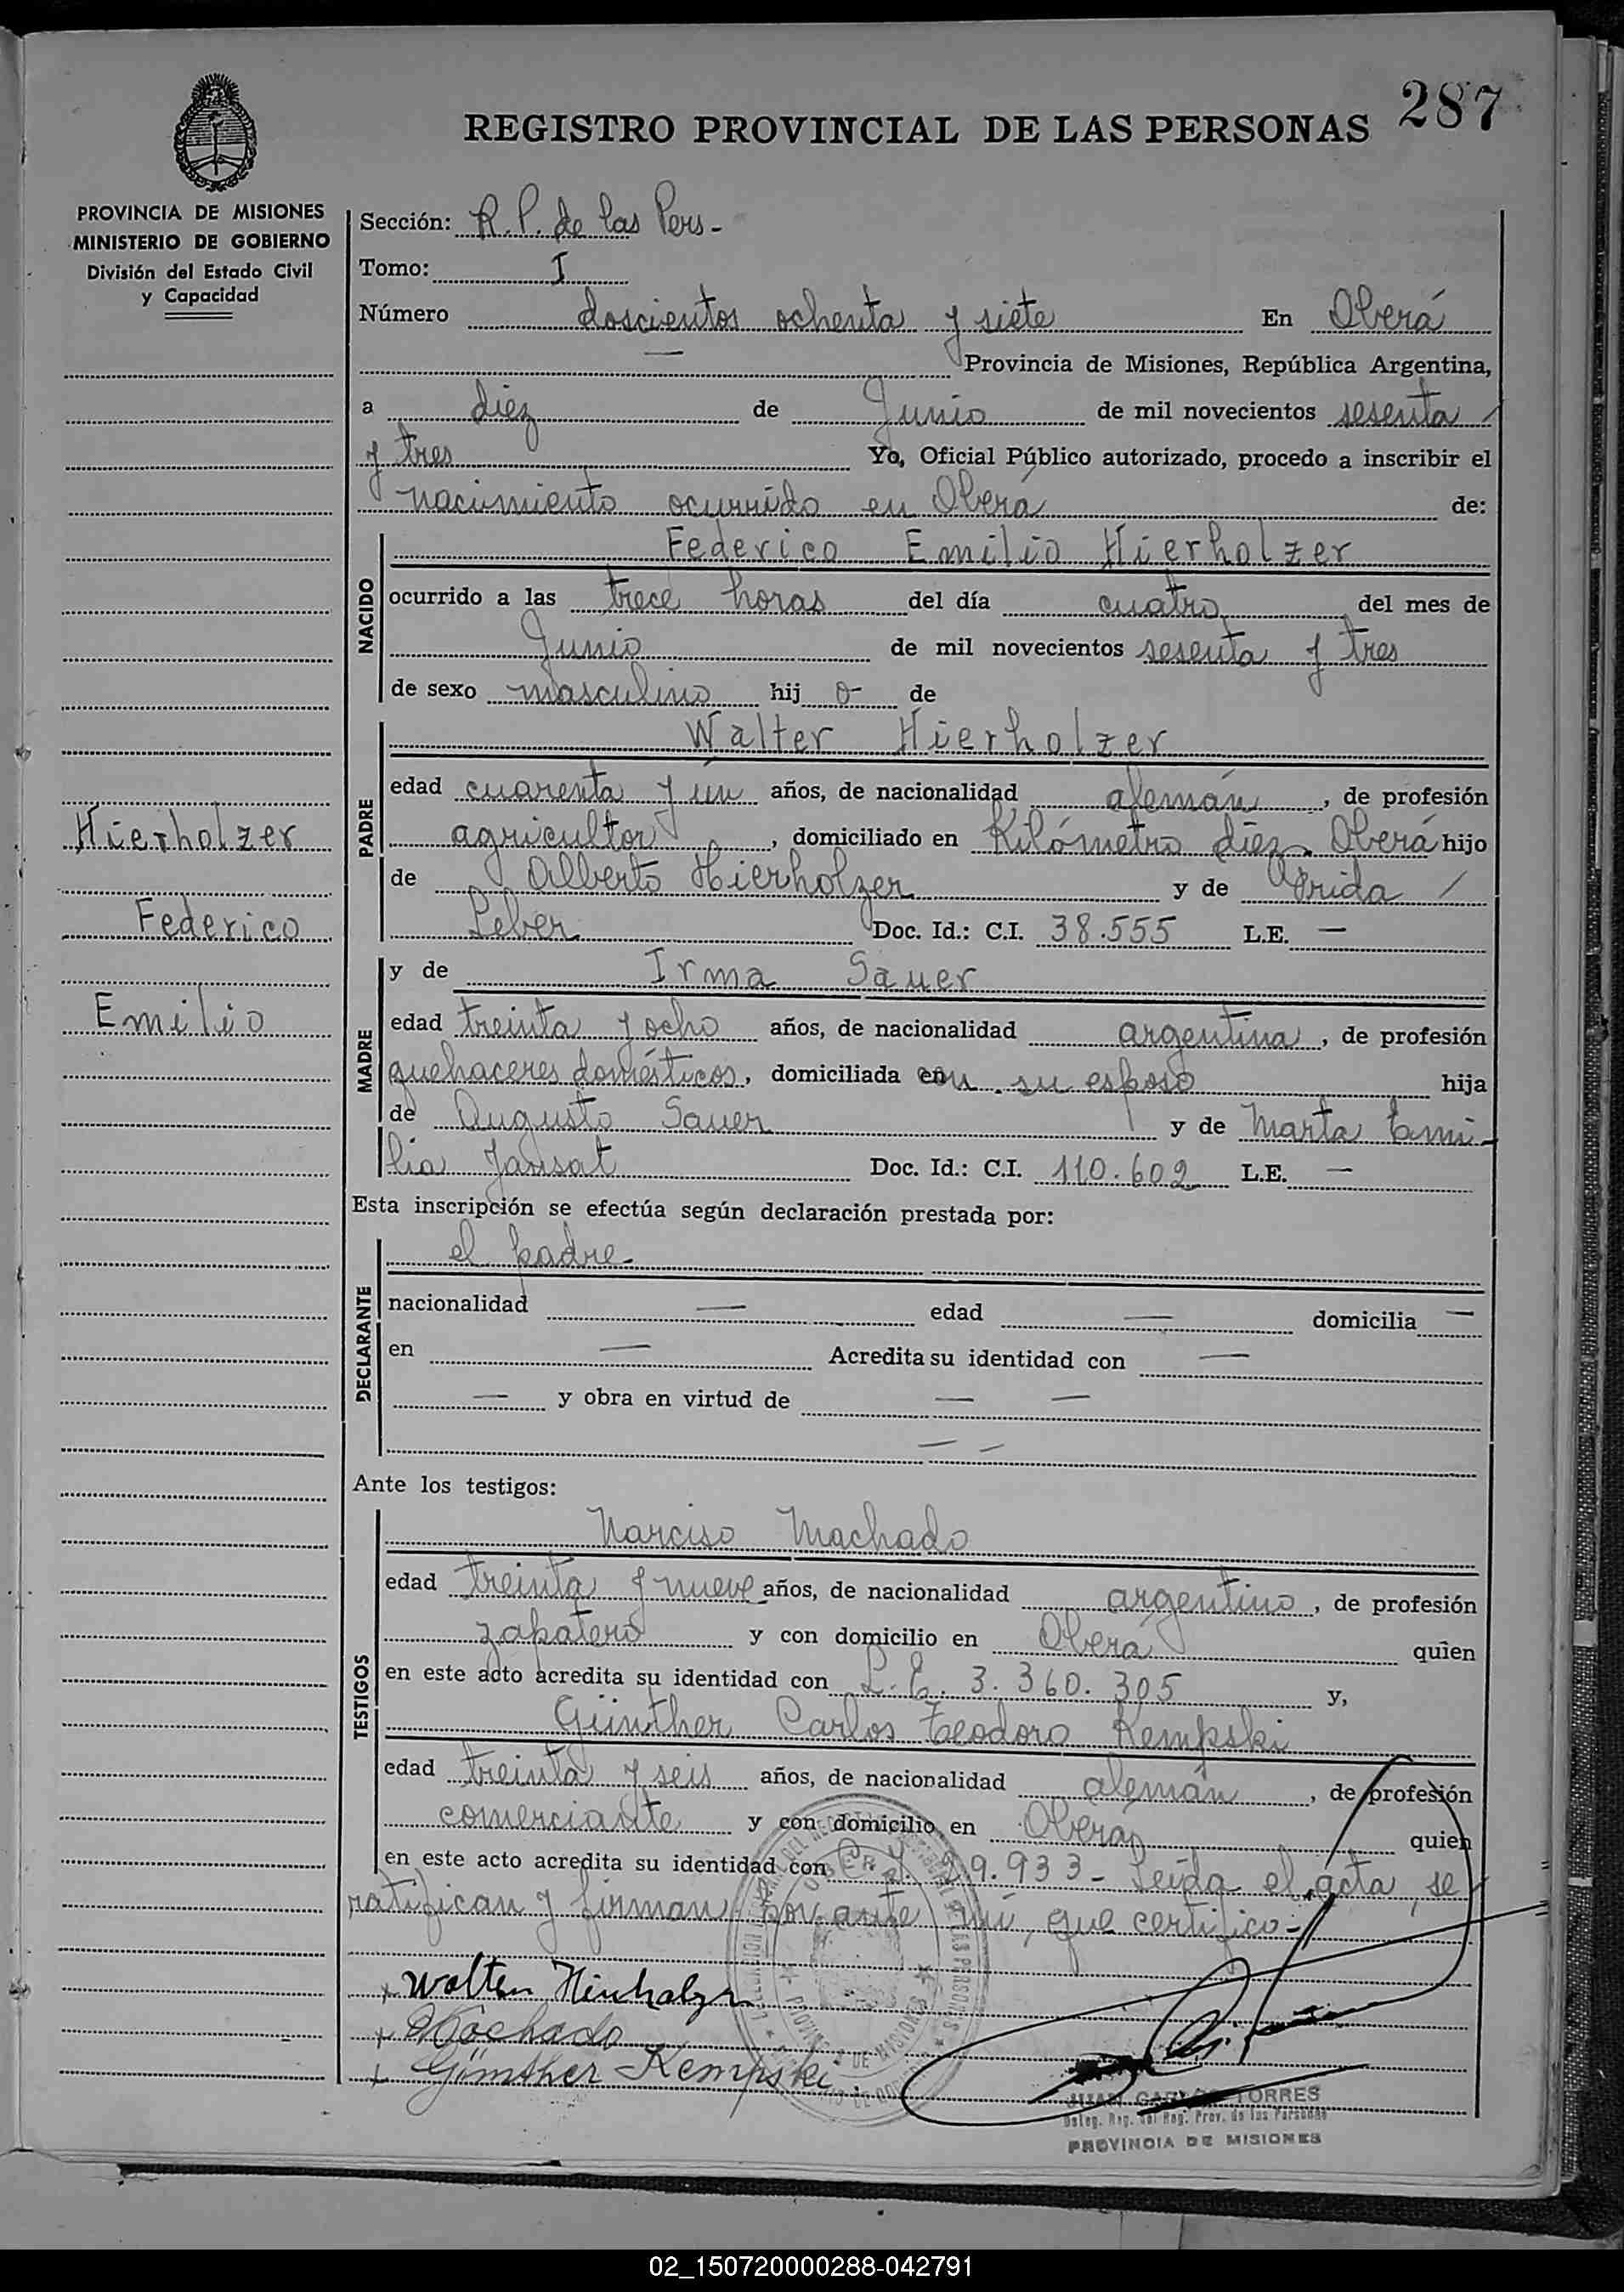 287
REGISTRO PROVINCIAL DE LAS PERSONAS
PROVINCIA DE MISIONES
MINISTERIO DE GOBIERNO
División del Estado Civil
y Capacidad
Hierholzer
Federico
Emilio
Sección: R. P. de las Pers-
Tomo: I
Número doscientos ochenta y siete En Oberá
— Provincia de Misiones, República Argentina,
a diez de Junio de mil novecientos sesenta /
y tres Yo, Oficial Público autorizado, procedo a inscribir el
nacimiento ocurrido en Oberá de:
NACIDO
Federico Emilio Hierholzer
ocurrido a las trece horas del día cuatro del mes de
Junio de mil novecientos sesenta y tres
de sexo masculino hij o- de
PADRE
Walter Hierholzer
edad cuarenta y un años, de nacionalidad alemán, de profesión
agricultor, domiciliado en Kilómetro diez. Oberá hijo
de Alberto Hierholzer y de Frida /
Leber Doc. Id.: C.I. 38.555 L.E. —
MADRE
y de Irma Sauer
edad treinta y ocho años, de nacionalidad argentina, de profesión
quehaceres domésticos, domiciliada con su esposo hija
de Augusto Sauer y de Marta Emi-
lia Doc. Id.: C.I. 110.602 L.E. —
Esta inscripción se efectúa según declaración prestada por:
DECLARANTE
el padre-
nacionalidad — edad — domicilia —
en — Acredita su identidad con —
— y obra en virtud de — —
— —
Ante los testigos:
TESTIGOS
Narciso Machado
edad treinta y nueve años, de nacionalidad argentino, de profesión
zapatero y con domicilio en Oberá quien
en este acto acredita su identidad con L. E. 3.360.305 y,
Günther Carlos Teodoro Kempski
edad treinta y seis años, de nacionalidad alemán, de profesión
comerciante y con domicilio en Oberá quien
en este acto acredita su identidad con 9.933- Leída el acta, se
ratifican y firman por ante mí, que certifico-
x Walter Hierholzer
x Machado
x Günther Kempski
JUAN CARLOS TORRES
Deleg. Reg. del Reg. Prov. de las Personas
PROVINCIA DE MISIONES
02_150720000288-042791